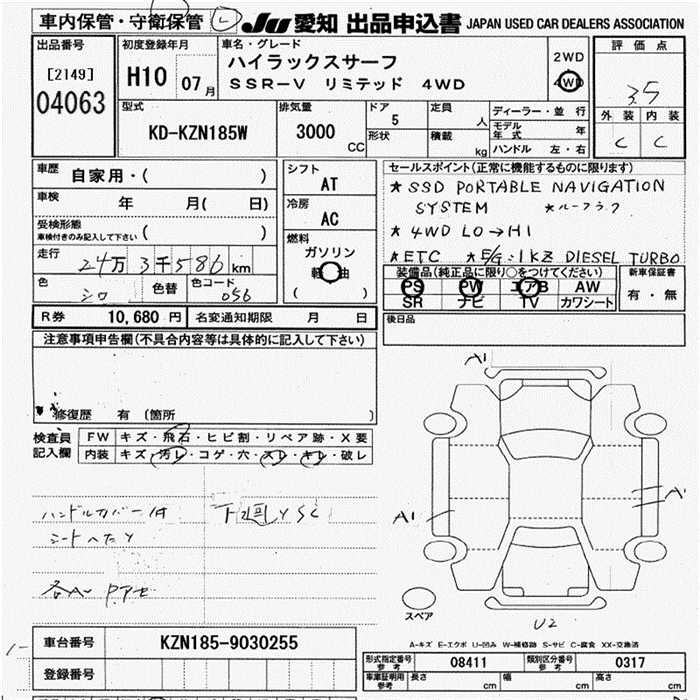 車内保管・守衛保管 JU 愛知 出品申込書 JAPAN USED CAR DEALERS ASSOCIATION
出品番号
[2149]
04063
初度登録年月
H10 07月
車名・グレード
ハイラックスサーフ
SSR-V リミテッド 4WD
2WD
4WD
評価点
3.5
外装 内装
C C
型式
KD-KZN185W
排気量
3000 CC
ドア
5
形状
定員
人
積載
kg
ディーラー・並行
モデル年式 年
ハンドル 左・右
車歴
自家用・( )
車検
年 月( 日)
受検形態
車検付きのみ記入して下さい ( )
走行
24万3千586km
色
シロ
色替
色コード
056
シフト
AT
冷房
AC
燃料
ガソリン
軽油
( )
セールスポイント(正常に機能するものに限ります)
★ SSD PORTABLE NAVIGATION
SYSTEM ★ルーフラク
★ 4WD LO→HI
★ETC ★E/G:1KZ DIESEL TURBO
装備品(純正品に限り○をつけてください)
PS PW エアB AW
SR ナビ TV カワシート
新車保証書
有・無
R券 10,680円 名変通知期限 月 日
後日品
注意事項申告欄(不具合内容等は具体的に記入して下さい)
修復歴 有 (箇所 )
検査員記入欄
FW キズ・飛石・ヒビ割・リペア跡・X要
内装 キズ・汚レ・コゲ・穴・スレ・キレ・破レ
ハンドルカバー付 下廻りSC
シートヘタリ
A1
A1
A1
U2
スペア
A-キズ E-エクボ U-凹み W-補修跡 S-サビ C-腐食 XX-交換済
車台番号 KZN185-9030255
登録番号
形式指定番号参考 08411 類別区分番号参考 0317
車庫証明用参考 長さ cm 幅 cm 高さ cm